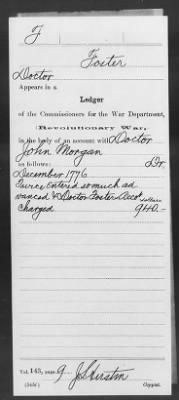 F
Foster
Doctor
Appears in a
Ledger
of the Commissioners for the War Department,
(Revolutionary War,
in the body of an account with Doctor
John Morgan
as follows: Dr.
December 1776
entered so much ad
vanced Doctor Foster Acct dollars
Charged 940.-
Vol. 143, page 9
Copyist.